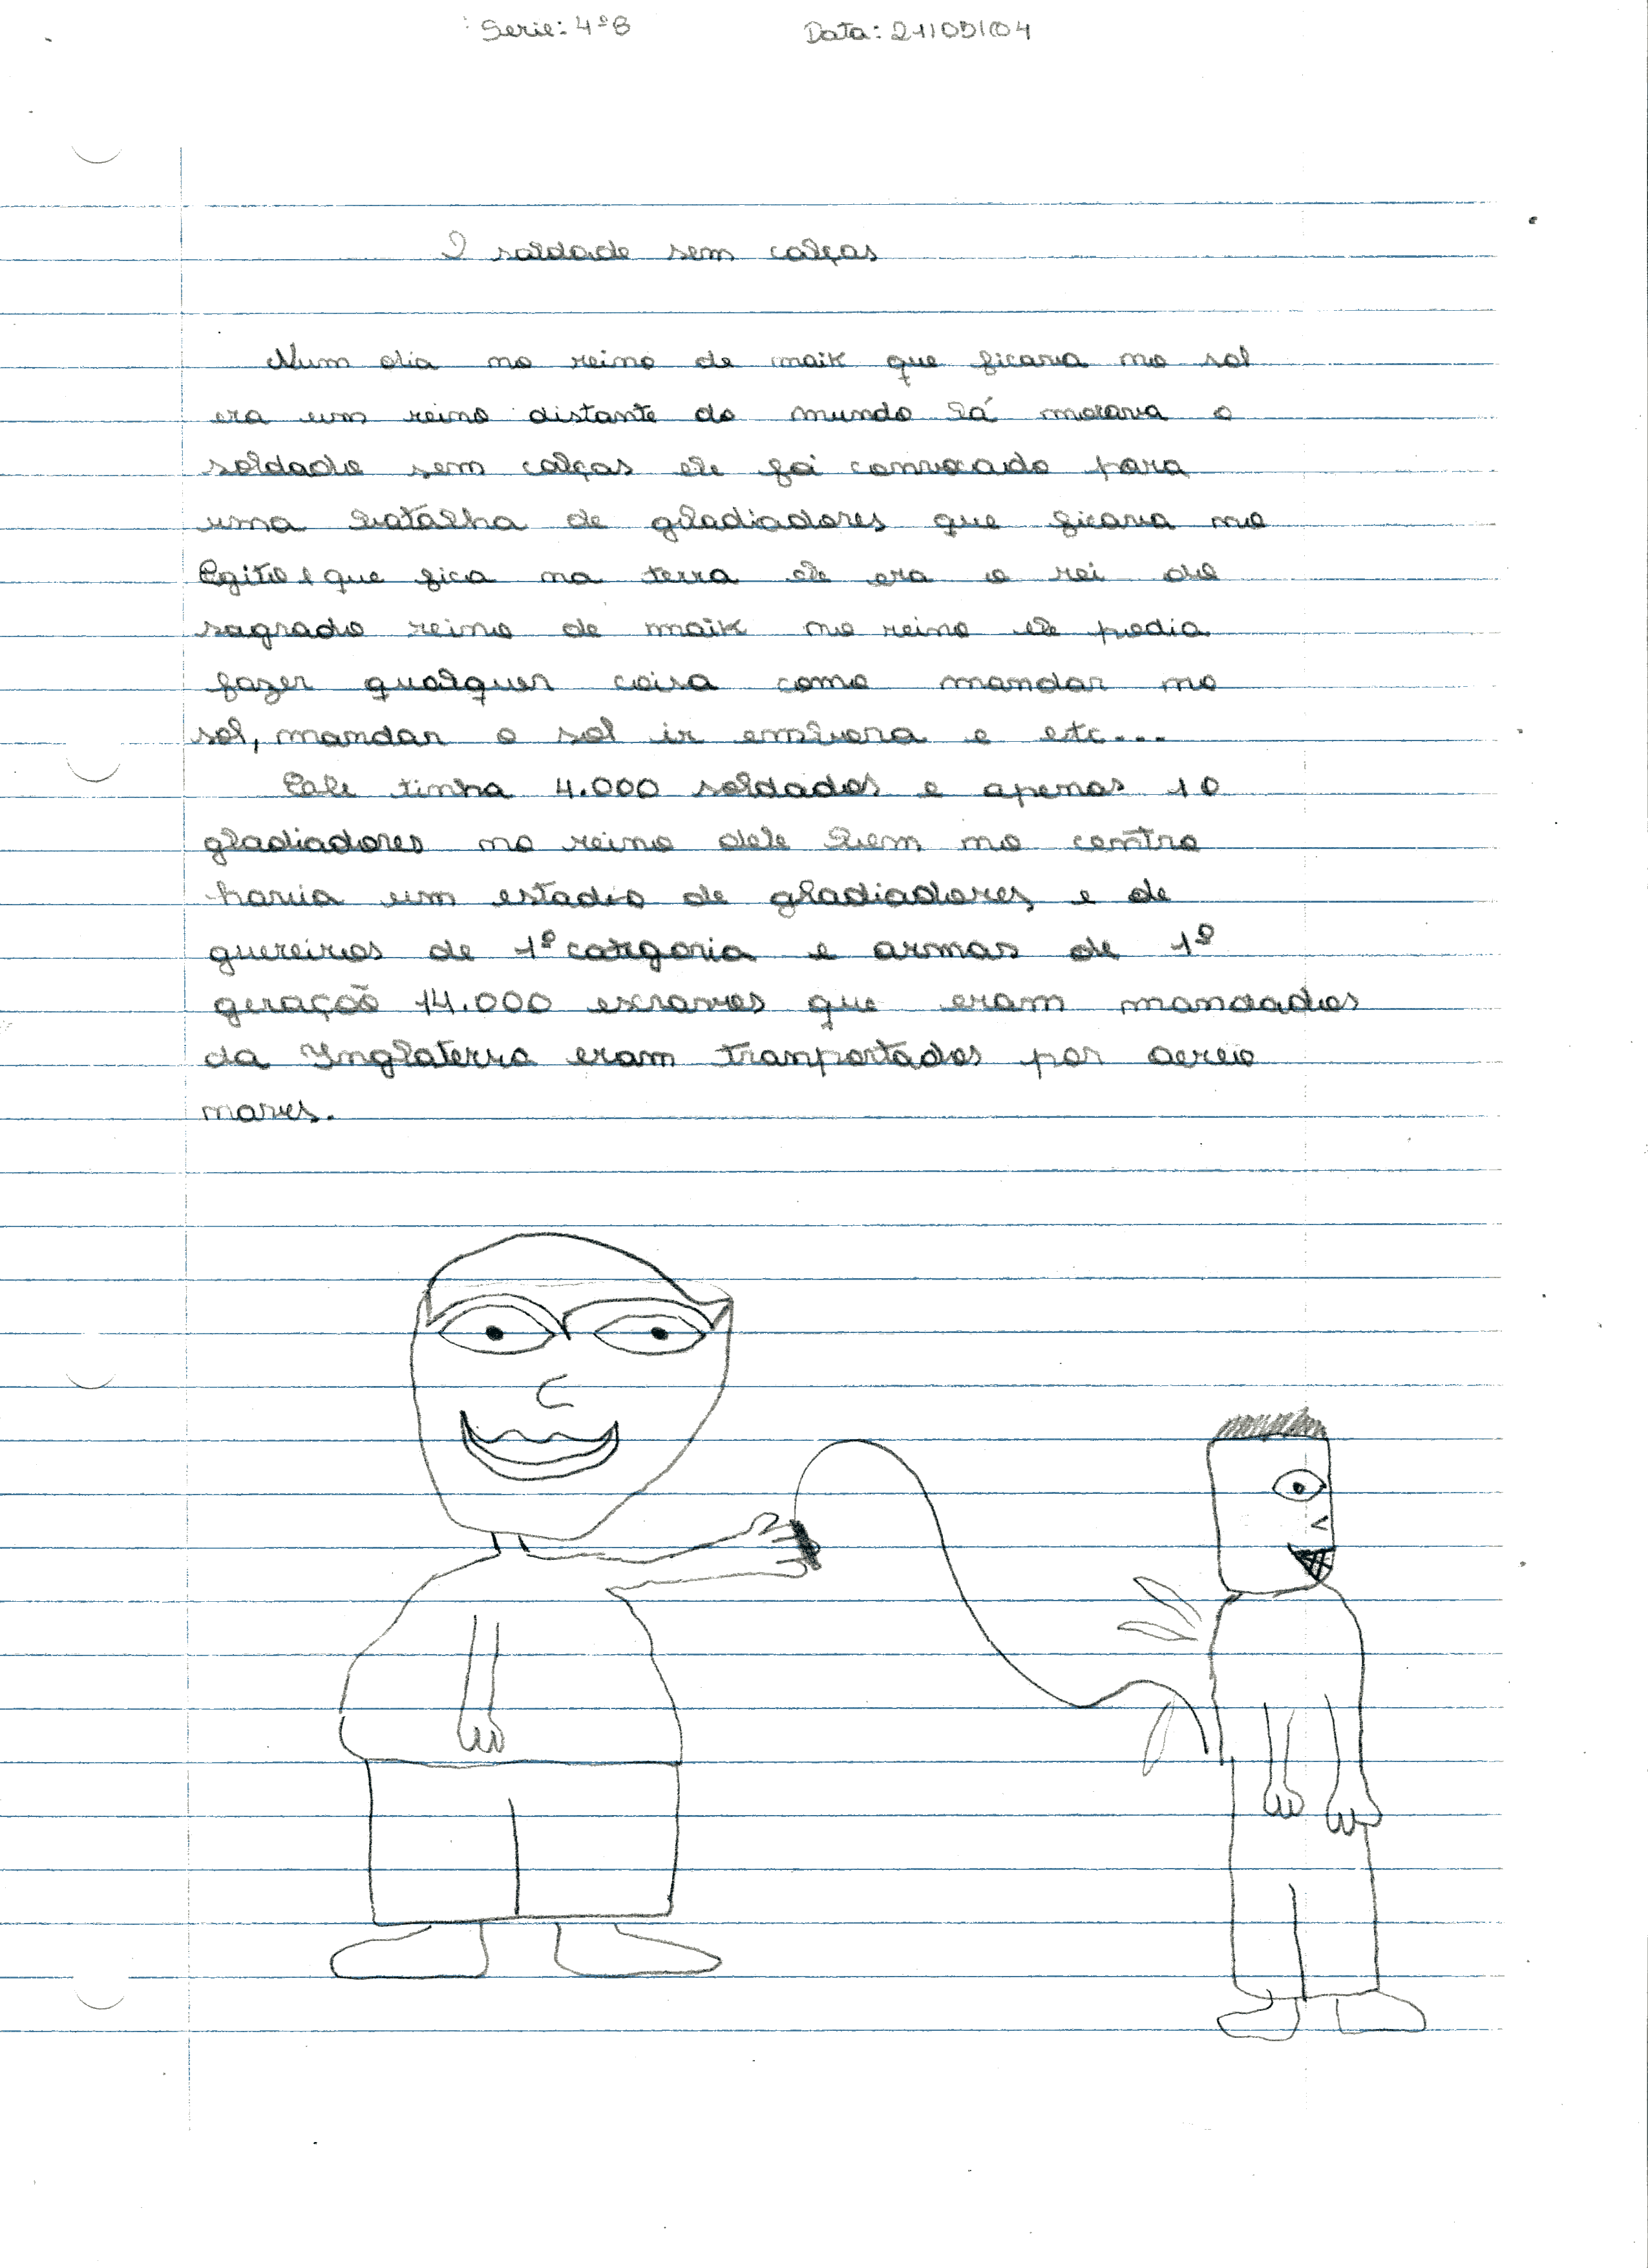 Serie: 4ºB Data: 21/05/04
O soldado sem calças
Num dia no reino de maik que ficava no sol
era um reino distante do mundo lá morava o
soldado sem calças ele foi convocado para
uma batalha de gladiadores que ficava no
Egito e que fica na terra ele era o rei do
sagrado reino de maik no reino ele podia
fazer qualquer coisa como mandar no
sol, mandar o sol ir embora e etc...
Eele tinha 4.000 soldados e apenas 10
gladiadores no reino dele bem no centro
havia um estadio de gladiadores, e de
guereiros de 1º categoria e armas de 1º
geração 14.000 escravos que eram mandados
da Inglaterra eram tranportados por aereo
naves.